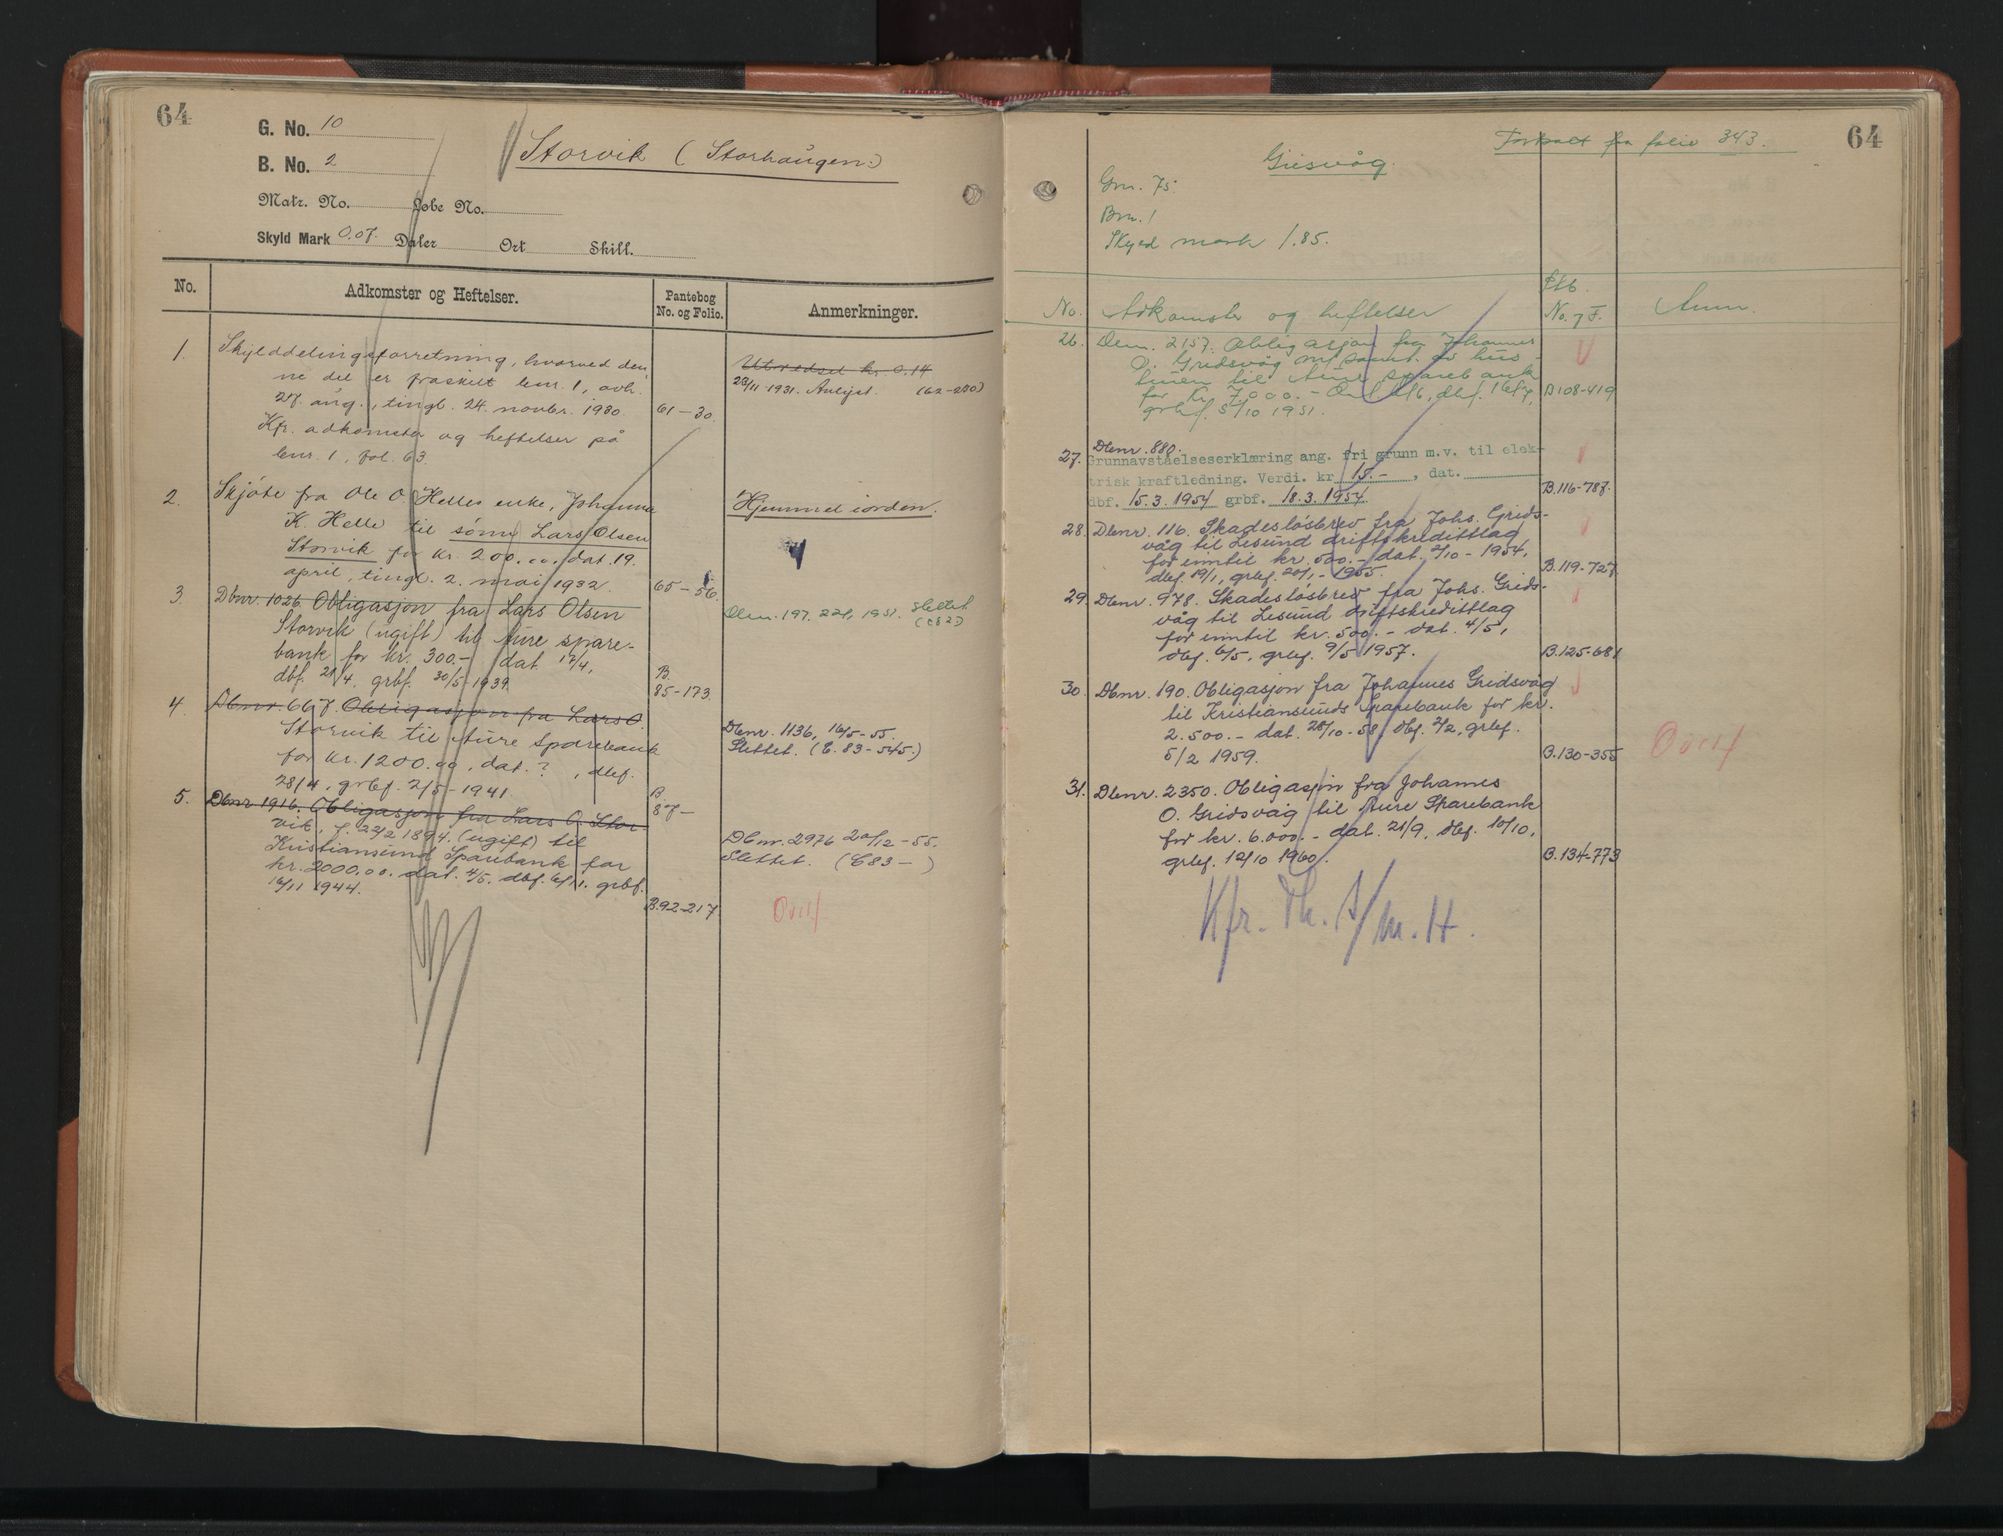 64
G. No. 10
B. No. 2
Storvik (Storhaugen.)
Matr. No. Løbe No.
Skyld Mark 0.07. Daler Ort Skill.
No. Adkomster og Heftelser. Pantebog No. og Folio. Anmerkninger.
1. Skylddelingsforretning, hvorved den-
ne del er fraskilt bnr. 1, avh.
27. aug., tingl. 24. novbr. 1930. 61-30.
Kfr. adkomster og heftelser på
bnr. 1, fol. 63.
Utredsel kr. 0.14
23/11-1931. Avlyst. (62-280)
2. Skjöte fra Ole O. Helles enke, Johanna
K. Helle til sönn Lars Olsen
Storvik for kr. 200.00, dat. 19.
april, tingl. 2. mai 1932. 65-56.
Hjemmel i orden.
3. Dbnr. 1026. Obligasjon fra Lars Olsen
Storvik (ugift) til Aure spare-
bank for kr. 300.- dat. 17/4,
dbf. 28/4. grbf. 30/5-1939. B. 85-173
Dbn. 197. 22/1, 1951. Slettet.
4. Dbnr. 667. Obligasjon fra Lars O.
Storvik til Aure Sparebank
for kr. 1200.00, dat. ?, dbf.
28/4, grbf. 2/5-1941. B. 87-
Dbnr. 1136, 16/5-55.
Slettet. (C. 83-545.)
5. Dbnr. 1916. Obligasjon fra Lars O. Stor-
vik, f. 23/2 1894. (ugift) til
Kristiansund Sparebank for
kr. 2000.00. dat. 4/5. dbf. 6/11. grbf.
16/11 1944. B. 92-217
Dbnr. 2976 20/12-55.
Slettet. (C83- )
Ovrf
64
Forsatt fra folio 343.
Grisvåg.
Gnr. 75.
Bnr. 1
Skyld mark 1.85.
No. Adkomster og heftelser Ptb. No. og F. Anm.
26. Dbnr. 2157. Obligasjon fra Johannes
O. Gridsvåg m/samt. av hus-
truen til Aure sparebank
for kr. 7.000.- dbf.
grbf. 5/10 1951. B108-419
27. Dbnr. 880.
Grunnavståelseserklæring ang. fri grunn m.v. til elek-
trisk kraftledning. Verdi. kr 15.-, dat.
dbf. 15.3.1954 grbf. 18.3.1954 B.116-787.
28. Dbnr. 116. Skadesløsbrev fra Johs. Grids-
våg til Lesund driftskredittlag
for inntil kr. 500.- dat. 2/10-1954,
dbf. 19/1, grbf. 20/1-1955. B.119-727
29. Dbnr. 978. Skadesløsbrev fra Johs. Grids-
våg til Lesund driftskredittlag
for inntil kr. 500.- dat. 4/5,
dbf. 6/5, grbf. 9/5 1957. B.125-681
30. Dbnr. 190. Obligasjon fra Johannes Gridsvåg
til Kristiansunds Sparebank for kr.
2.500.- dat. 28/10-58, dbf. 2/2, grbf.
5/2 1959. B.130-355
Ovrf
31. Dbnr. 2350. Obligasjon fra Johannes
O. Gridsvåg til Aure Sparebank
for kr. 6.000.- dat. 21/9, dbf. 10/10,
grbf. 12/10 1960. B.134-773
Kfr.